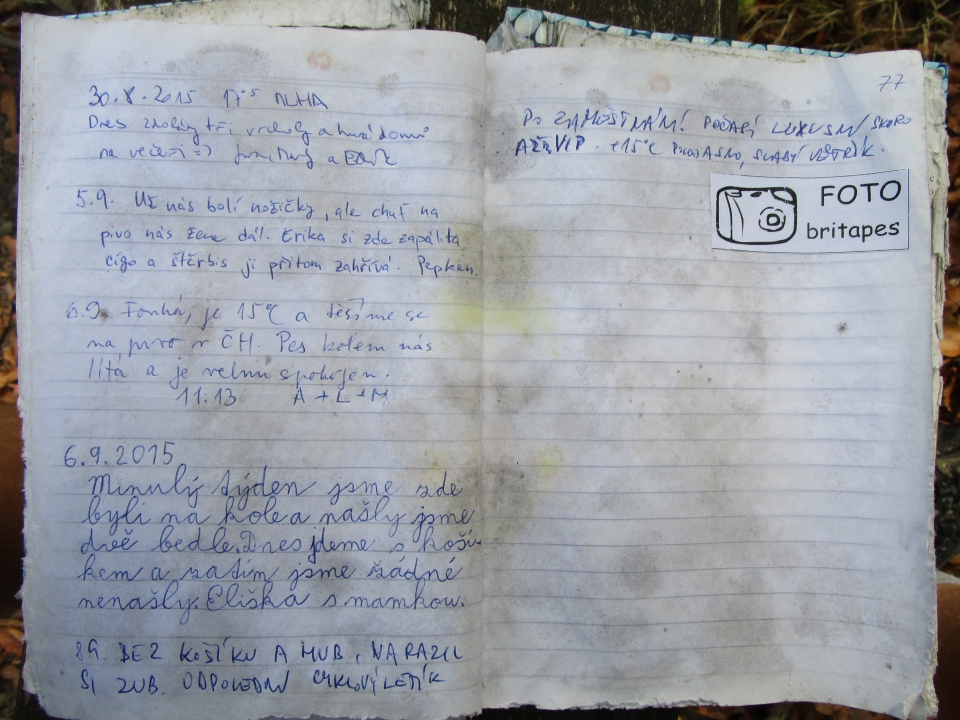 30.8.2015 17⁰⁵ MLHA
Dnes zdolány tři vrcholy a hurá domů
na večeři =) a
5.9. Už nás bolí nožičky, ale chuť na
pivo nás žene dál. Erika si zde zapálila
cígo a Štěrbis ji přitom zahřívá. Pepken.
6.9. Fouká, je 15°C a těšíme se
na pivo v ČH. Pes kolem nás
lítá a je velmi spokojen.
11:13 A + L + M
6.9.2015
Minulý týden jsme zde
byli na kole a našly jsme
dvě bedle. Dnes jdeme s koší-
kem a zatím jsme žádné
nenašly. Eliška s mamkou.
BEZ KOŠÍKU A HUB,
SI ZUB. ODPOLEDNÍ CYKLOVÝLETÍK
77
POČASÍ LUXUSNÍ, SKORO
AŽ VIP. +15°C POLOJASNO, SLABÝ VĚTŘÍK.
FOTO
britapes